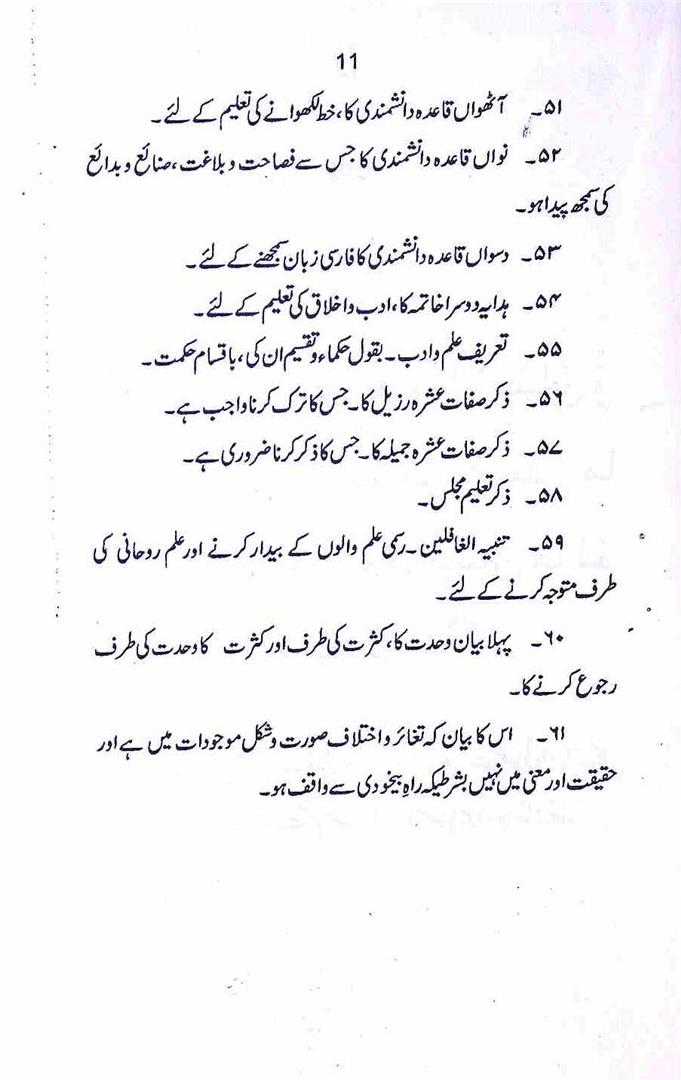 11
۵۱۔ آٹھواں قاعدہ دانشمندی کا، خط لکھوانے کی تعلیم کے لئے۔
۵۲۔ نواں قاعدہ دانشمندی کا جس سے فصاحت و بلاغت، صنائع و بدائع
کی سمجھ پیدا ہو۔
۵۳۔ دسواں قاعدہ دانشمندی کا فارسی زبان سمجھنے کے لئے۔
۵۴۔ ہدایہ دوسرا خاتمہ کا، ادب و اخلاق کی تعلیم کے لئے۔
۵۵۔ تعریف علم و ادب۔ بقول حکماء و تقسیم ان کی، باقسام حکمت۔
۵۶۔ ذکر صفات عشرہ رزیل کا۔ جس کا ترک کرنا واجب ہے۔
۵۷۔ ذکر صفات عشرہ جمیلہ کا۔ جس کا ذکر کرنا ضروری ہے۔
۵۸۔ ذکر تعلیم مجلس۔
۵۹۔ تنبیہ الغافلین۔ رسمی علم والوں کے بیدار کرنے اور علم روحانی کی
طرف متوجہ کرنے کے لئے۔
۶۰۔ پہلا بیان وحدت کا، کثرت کی طرف اور کثرت کا وحدت کی طرف
رجوع کرنے کا۔
۶۱۔ اس کا بیان کہ تغائر و اختلاف صورت و شکل موجودات میں ہے اور
حقیقت اور معنی میں نہیں بشرطیکہ راہِ بیخودی سے واقف ہو۔